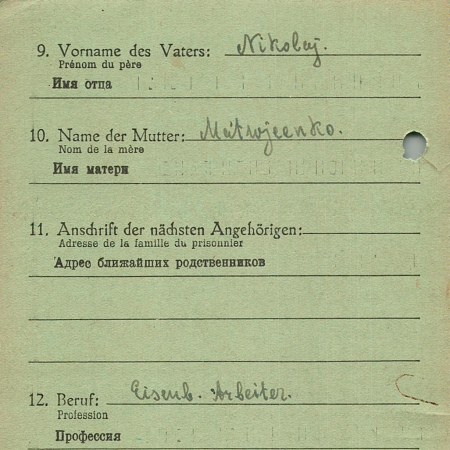 9. Vorname des Vaters: Nikolaj.
Prénom du père
Имя отца
10. Name der Mutter: Matwjeenko.
Nom de la mère
Имя матери
11. Anschrift der nächsten Angehörigen:
Adresse de la famille du prisonnier
Адрес ближайших родственников
12. Beruf: Eisenb. Arbeiter.
Profession
Профессия